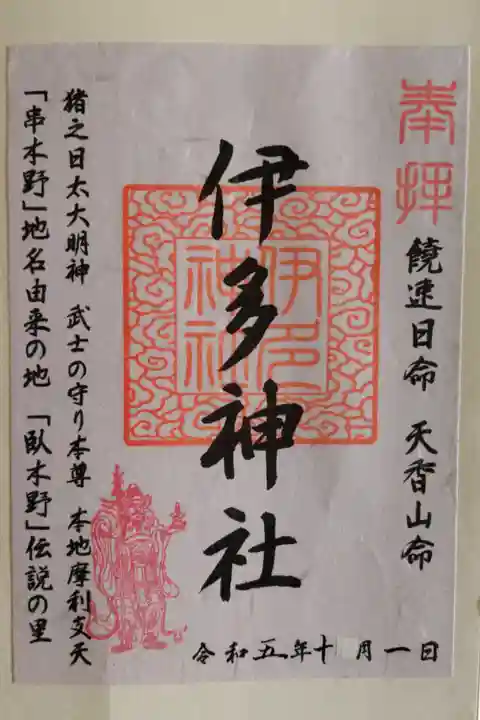 奉拝
饒速日命 天香山命
伊多神社
伊多
神社
猪之日太大明神 武士の守り本尊 本地摩利支天
「串木野」地名由来の地 「臥木野」伝説の里
令和五年十月一日